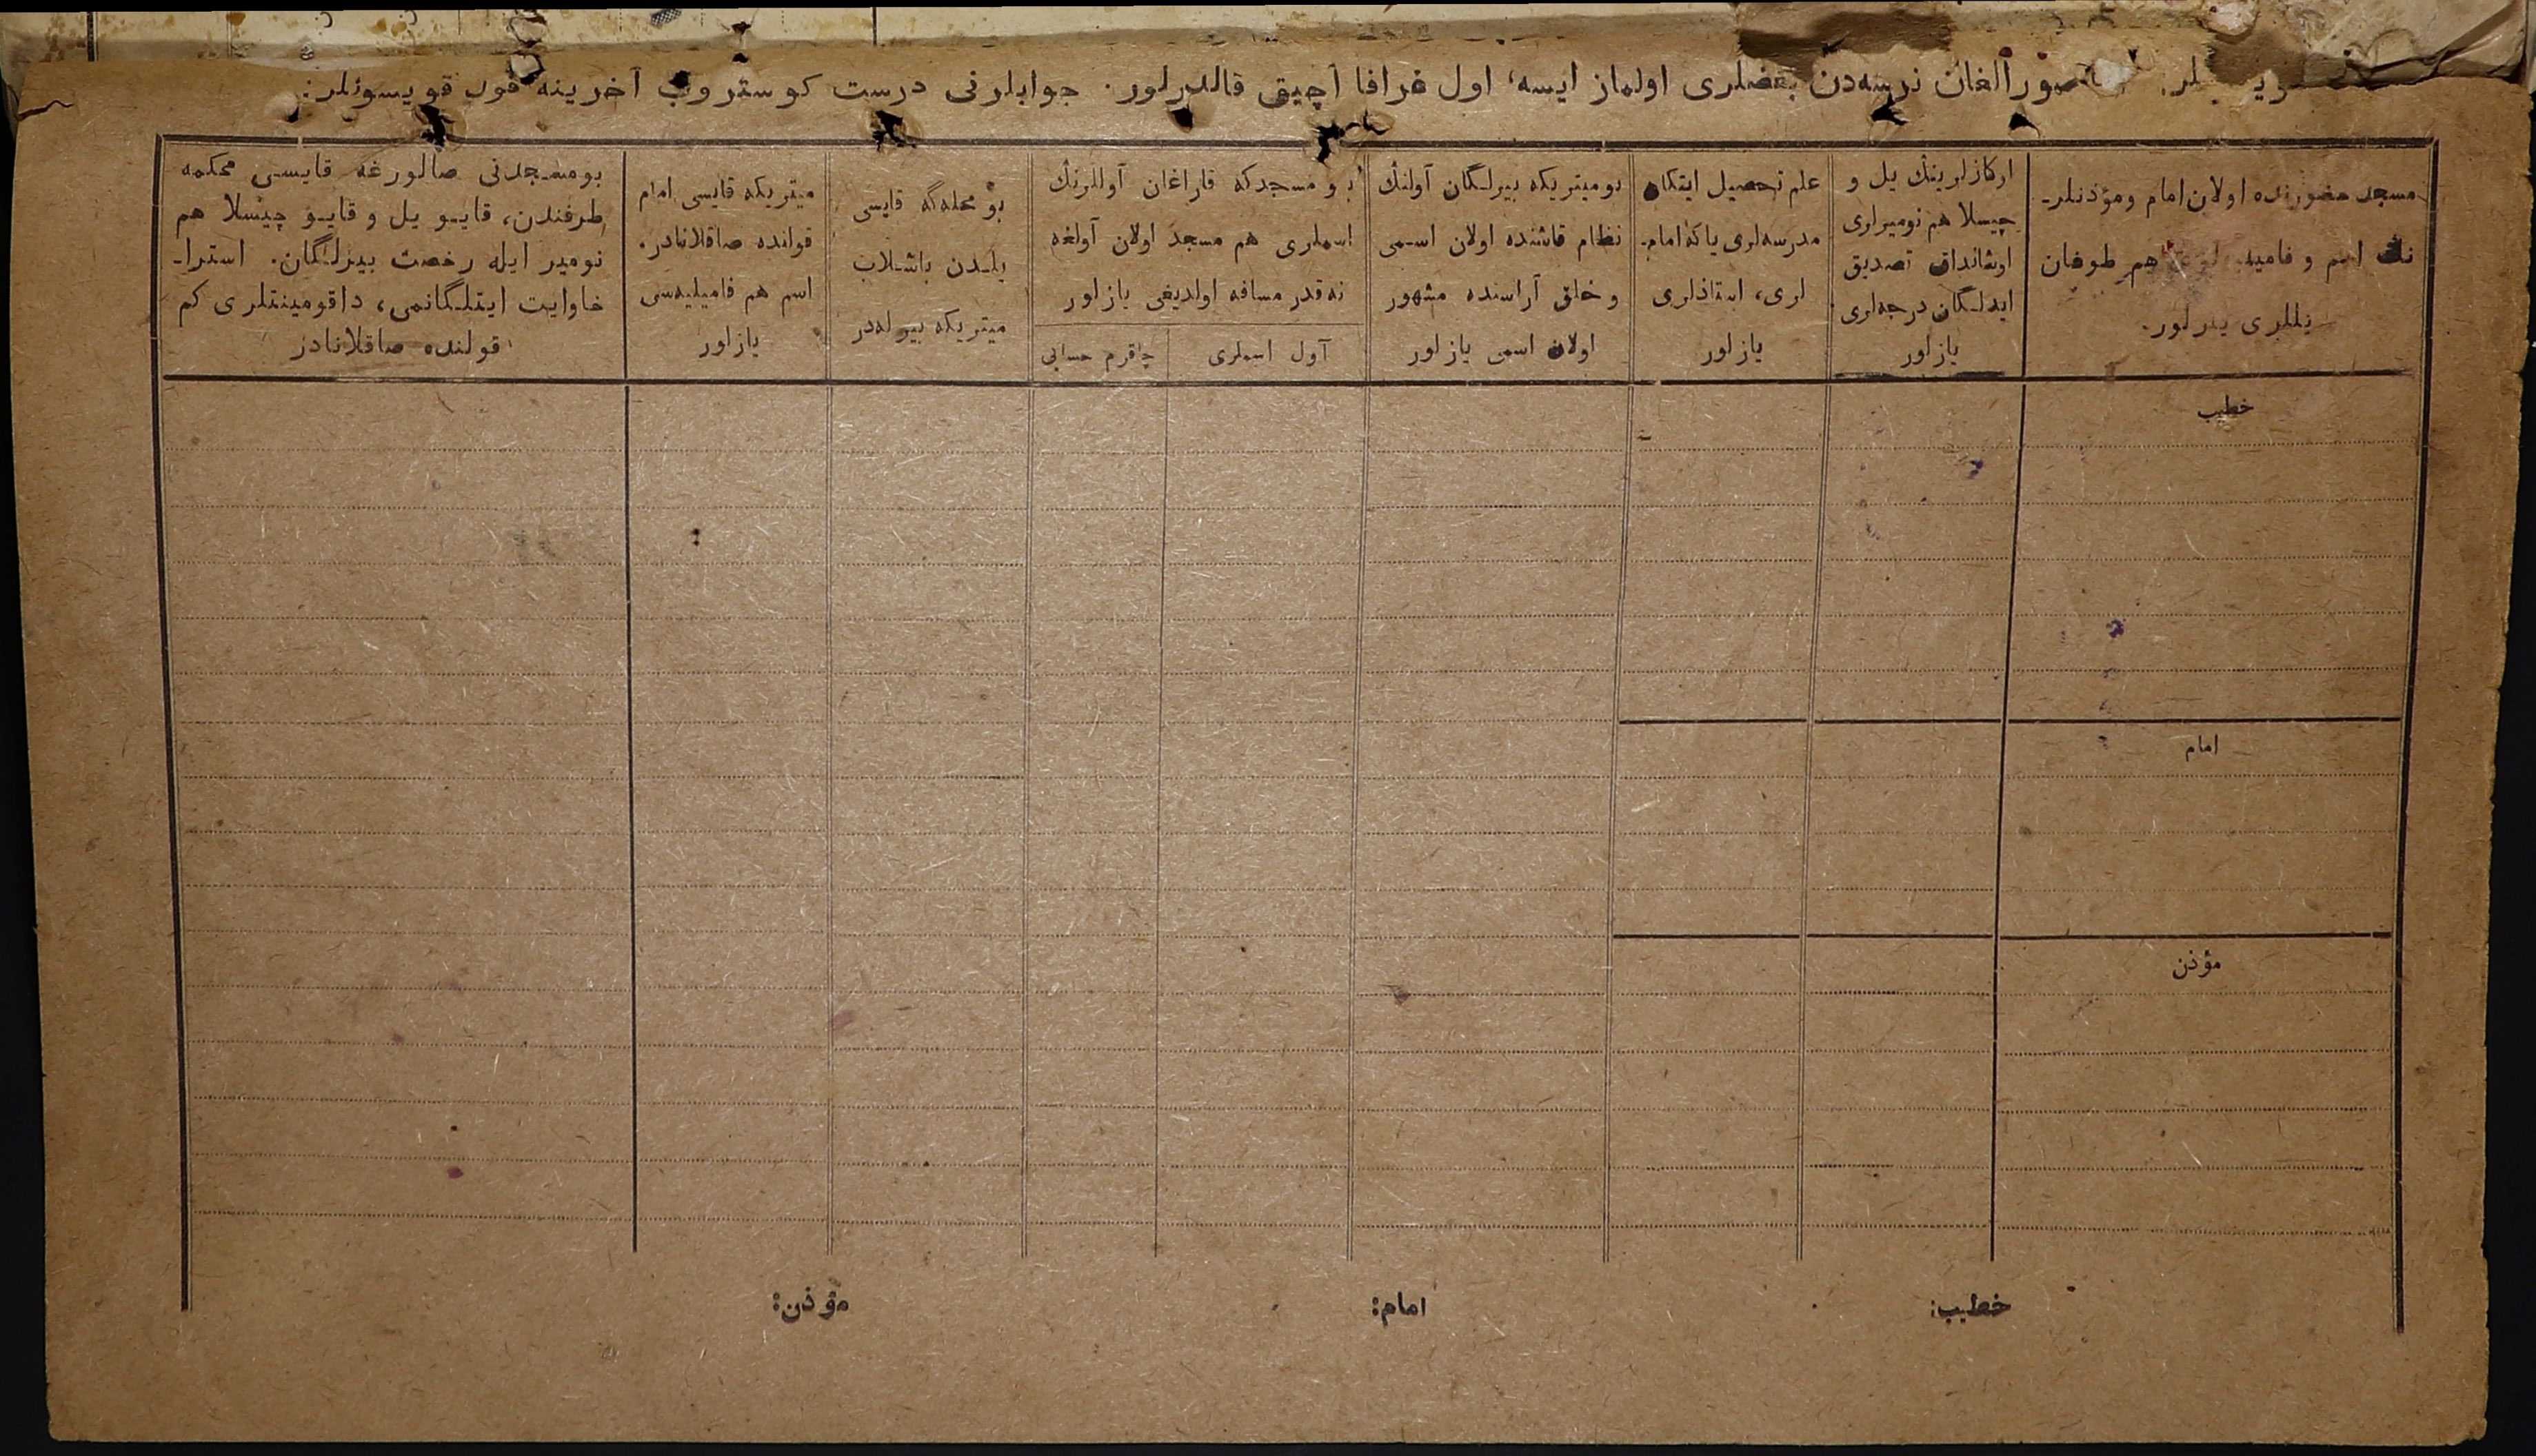 صورالغان نرسه‌دن بعضلری اولماز ایسه، اول غرافا آچیق قالدرلور. جوابلرنی درست کوستروب آخرینه قول قویسونلر:
مسجد حضورنده اولان امام ومؤذنلر-
نڭ اسم و فامیلیه هم طوغان
یللری یازلور.
ارکازلرینڭ یل و
چیسلا هم نومیرلری
اوشانداق تصدیق
ایدلگان درجه‌لری
یازلور
علم تحصیل ایتکان
مدرسه‌لری یا که امام-
لری، استاذلری
یازلور
بو میتریکه بیرلگان آولنڭ
نظام قاشنده اولان اسمی
و خلق آراسنده مشهور
اولان اسمی یازلور
بو مسجدکه قاراغان آوللرنڭ
اسملری هم مسجد اولان آولغه
نه قدر مسافه اولدیغی یازلور
آول اسملری
چاقرم حسابی
بو محله‌گه قایسی
یلدن باشلاب
میتریکه بیرله‌در
میتریکه قایسی امام
قولنده صاقلانادر.
اسم هم فامیلیه‌سی
یازلور
بو مسجدنی صالورغه قایسی محکمه
طرفندن، قایو یل و قایو چیسلا هم
نومیر ایله رخصت بیرلگان. استرا-
خاوایت ایتلگانمی، داقومینتلری کم
قولنده صاقلانادر
خطیب
امام
مؤذن
خطیب:
امام:
مؤذن: